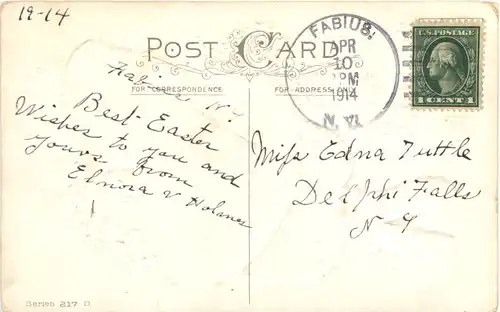 19-14
POST CARD
FOR CORRESPONDENCE
FOR ADDRESS ONLY
FABIUS.
APR
10
PM
1914
N.Y.
U.S. POSTAGE
1 CENT 1
Fabius N.Y.
Best Easter
Wishes to you and
yours from
Elnora V Holmes
Miss Edna Tuttle
Delphi Falls
N-Y
Series 217 D